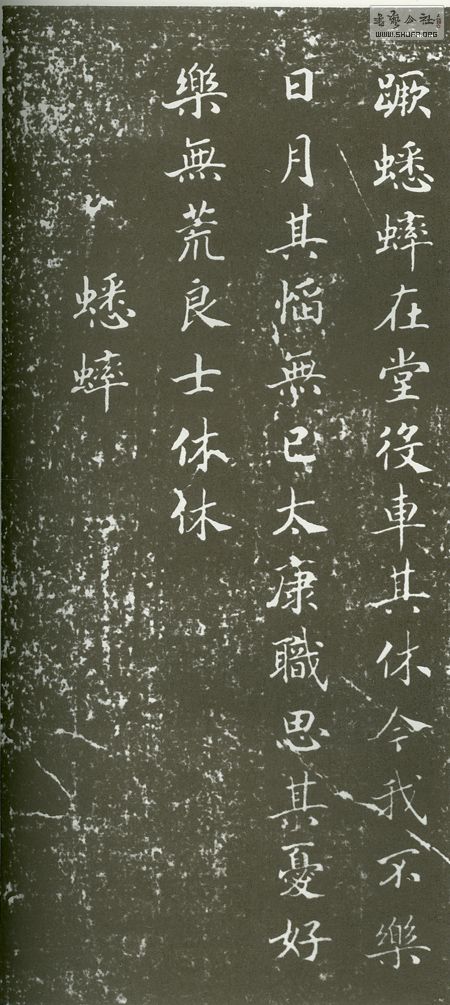 蹶蟋蟀在堂役車其休今我不樂
日月其慆無已太康職思其憂好
樂無荒良士休休
蟋蟀
書藝公社
WWW.SHUFA.ORG